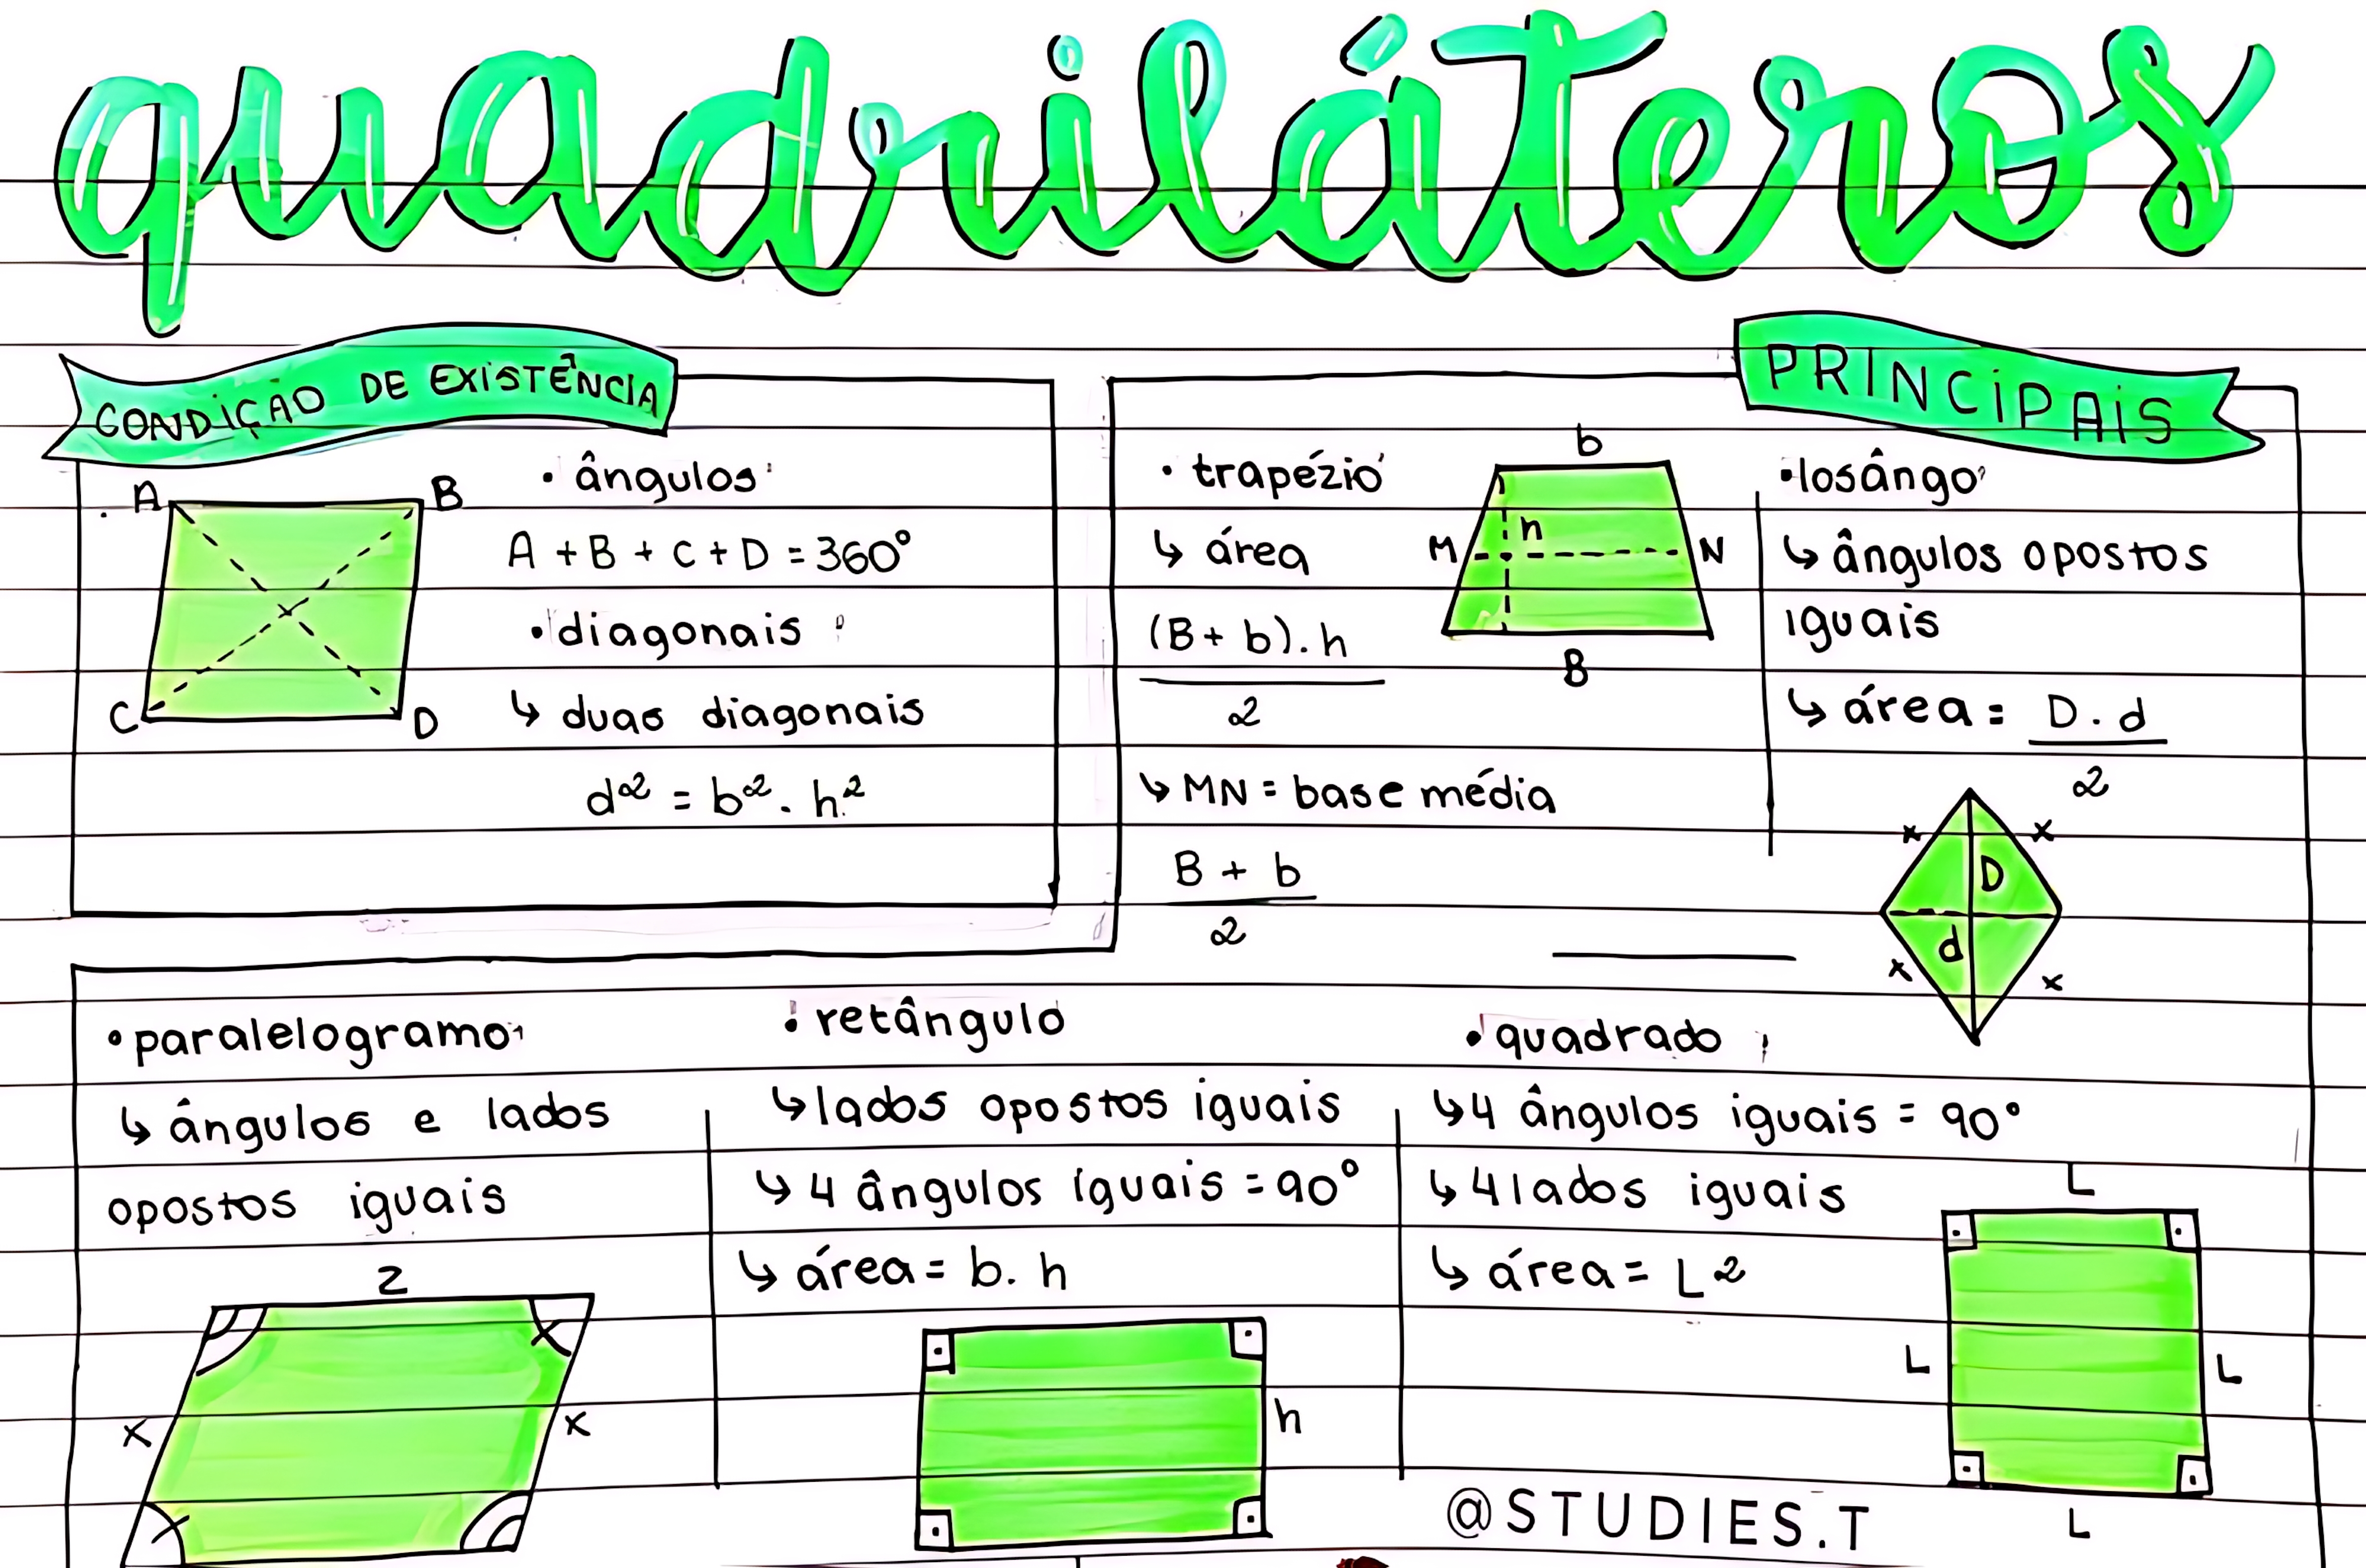 quadriláteros
CONDIÇÃO DE EXISTÊNCIA
A
B
C
D
• ângulos:
A + B + C + D = 360°
• diagonais:
↳ duas diagonais
d² = b² . h²
PRINCIPAIS
• trapézio
↳ área
(B + b) . h
2
↳ MN = base média
B + b
2
b
h
M
N
B
• losângo
↳ ângulos opostos
iguais
↳ área = D . d
2
x
x
D
d
x
x
• paralelogramo
↳ ângulos e lados
opostos iguais
z
x
x
x
x
• retângulo
↳ lados opostos iguais
↳ 4 ângulos iguais = 90°
↳ área = b . h
h
• quadrado
↳ 4 ângulos iguais = 90°
↳ 4 lados iguais
↳ área = L²
L
L
L
L
@STUDIES.T